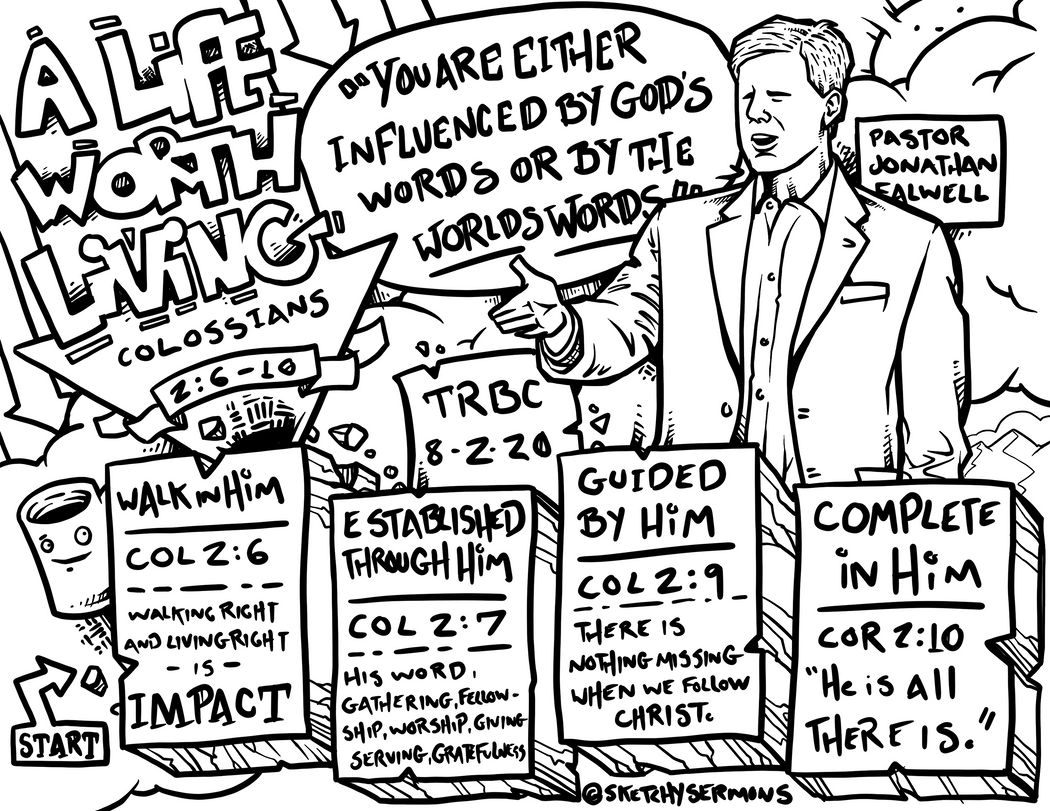 A LIFE
WORTH
LIVING
COLOSSIANS
2:6-10
"YOU ARE EITHER
INFLUENCED BY GOD'S
WORDS OR BY THE
WORLDS WORDS."
PASTOR
JONATHAN
FALWELL
TRBC
8-2-20
START
WALK IN HIM
COL 2:6
WALKING RIGHT
AND LIVING RIGHT
- IS -
IMPACT
ESTABLISHED
THROUGH HIM
COL 2:7
HIS WORD,
GATHERING, FELLOW-
SHIP, WORSHIP, GIVING
SERVING, GRATEFULNESS
GUIDED
BY HIM
COL 2:9
THERE IS
NOTHING MISSING
WHEN WE FOLLOW
CHRIST.
COMPLETE
IN HIM
COR 2:10
"He is All
THERE IS."
©SKETCHYSERMONS